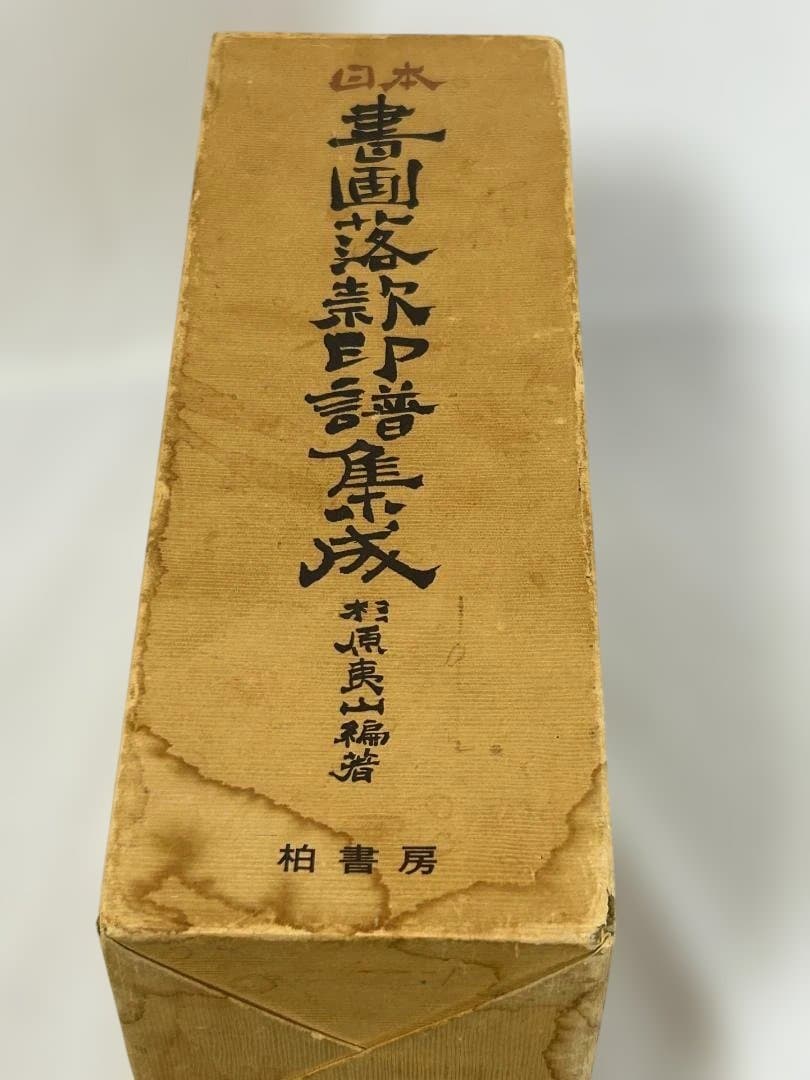 日本
書画落款印譜集成
杉原夷山編著
柏書房